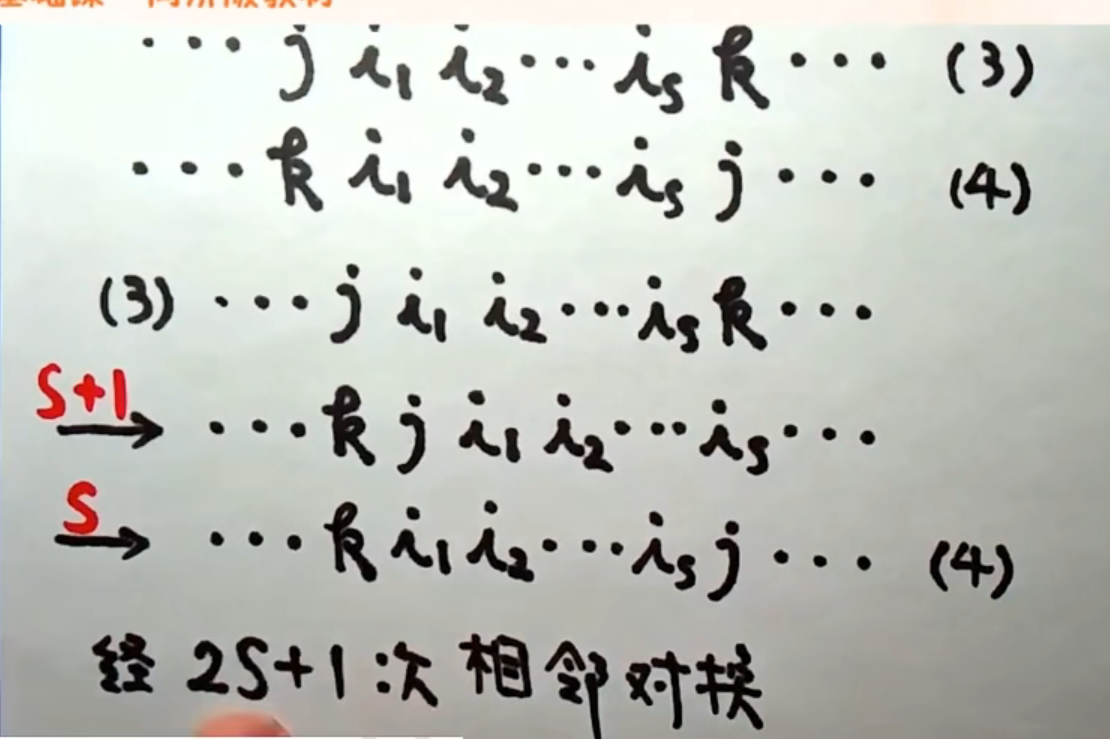 ··· j i₁ i₂ ··· iₛ k ··· (3)
··· k i₁ i₂ ··· iₛ j ··· (4)
(3) ··· j i₁ i₂ ··· iₛ k ···
S+1 → ··· k j i₁ i₂ ··· iₛ ···
S → ··· k i₁ i₂ ··· iₛ j ··· (4)
经 2S+1 次相邻对换